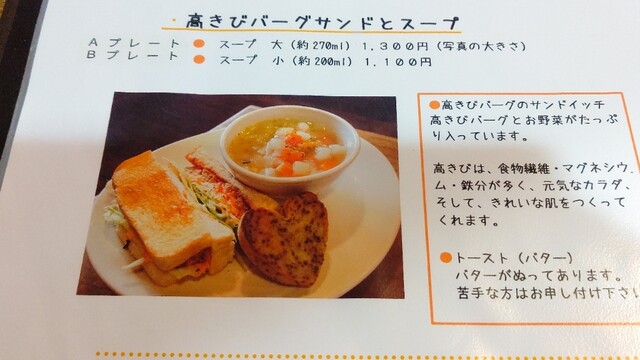 ・高きびバーグサンドとスープ
A プレート ● スープ 大 (約270ml) 1,300円 (写真の大きさ)
B プレート ● スープ 小 (約200ml) 1,100円
●高きびバーグのサンドイッチ
高きびバーグとお野菜がたっぷ
り入っています。
高きびは、食物繊維・マグネシウ
ム・鉄分が多く、元気なカラダ、
そして、きれいな肌をつくって
くれます。
●トースト (バター)
バターがぬってあります。
苦手な方はお申し付け下さい